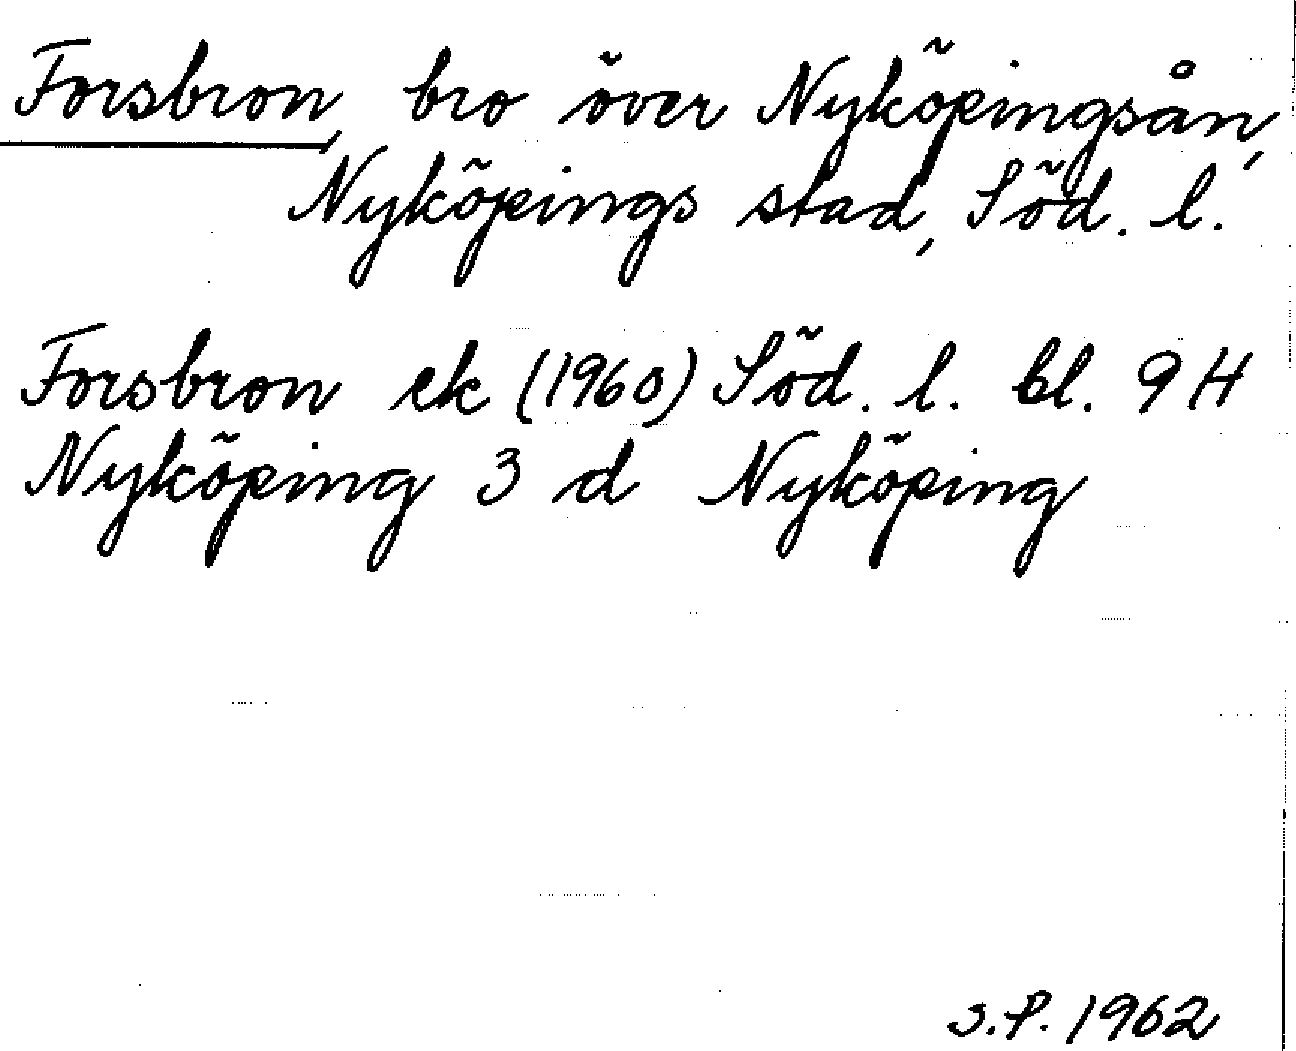 Forsbron, bro över Nyköpingsån,
Nyköpings stad, Söd. l.
Forsbron ek (1960) Söd. l. bl. 9 H
Nyköping 3 d Nyköping
S.P. 1962